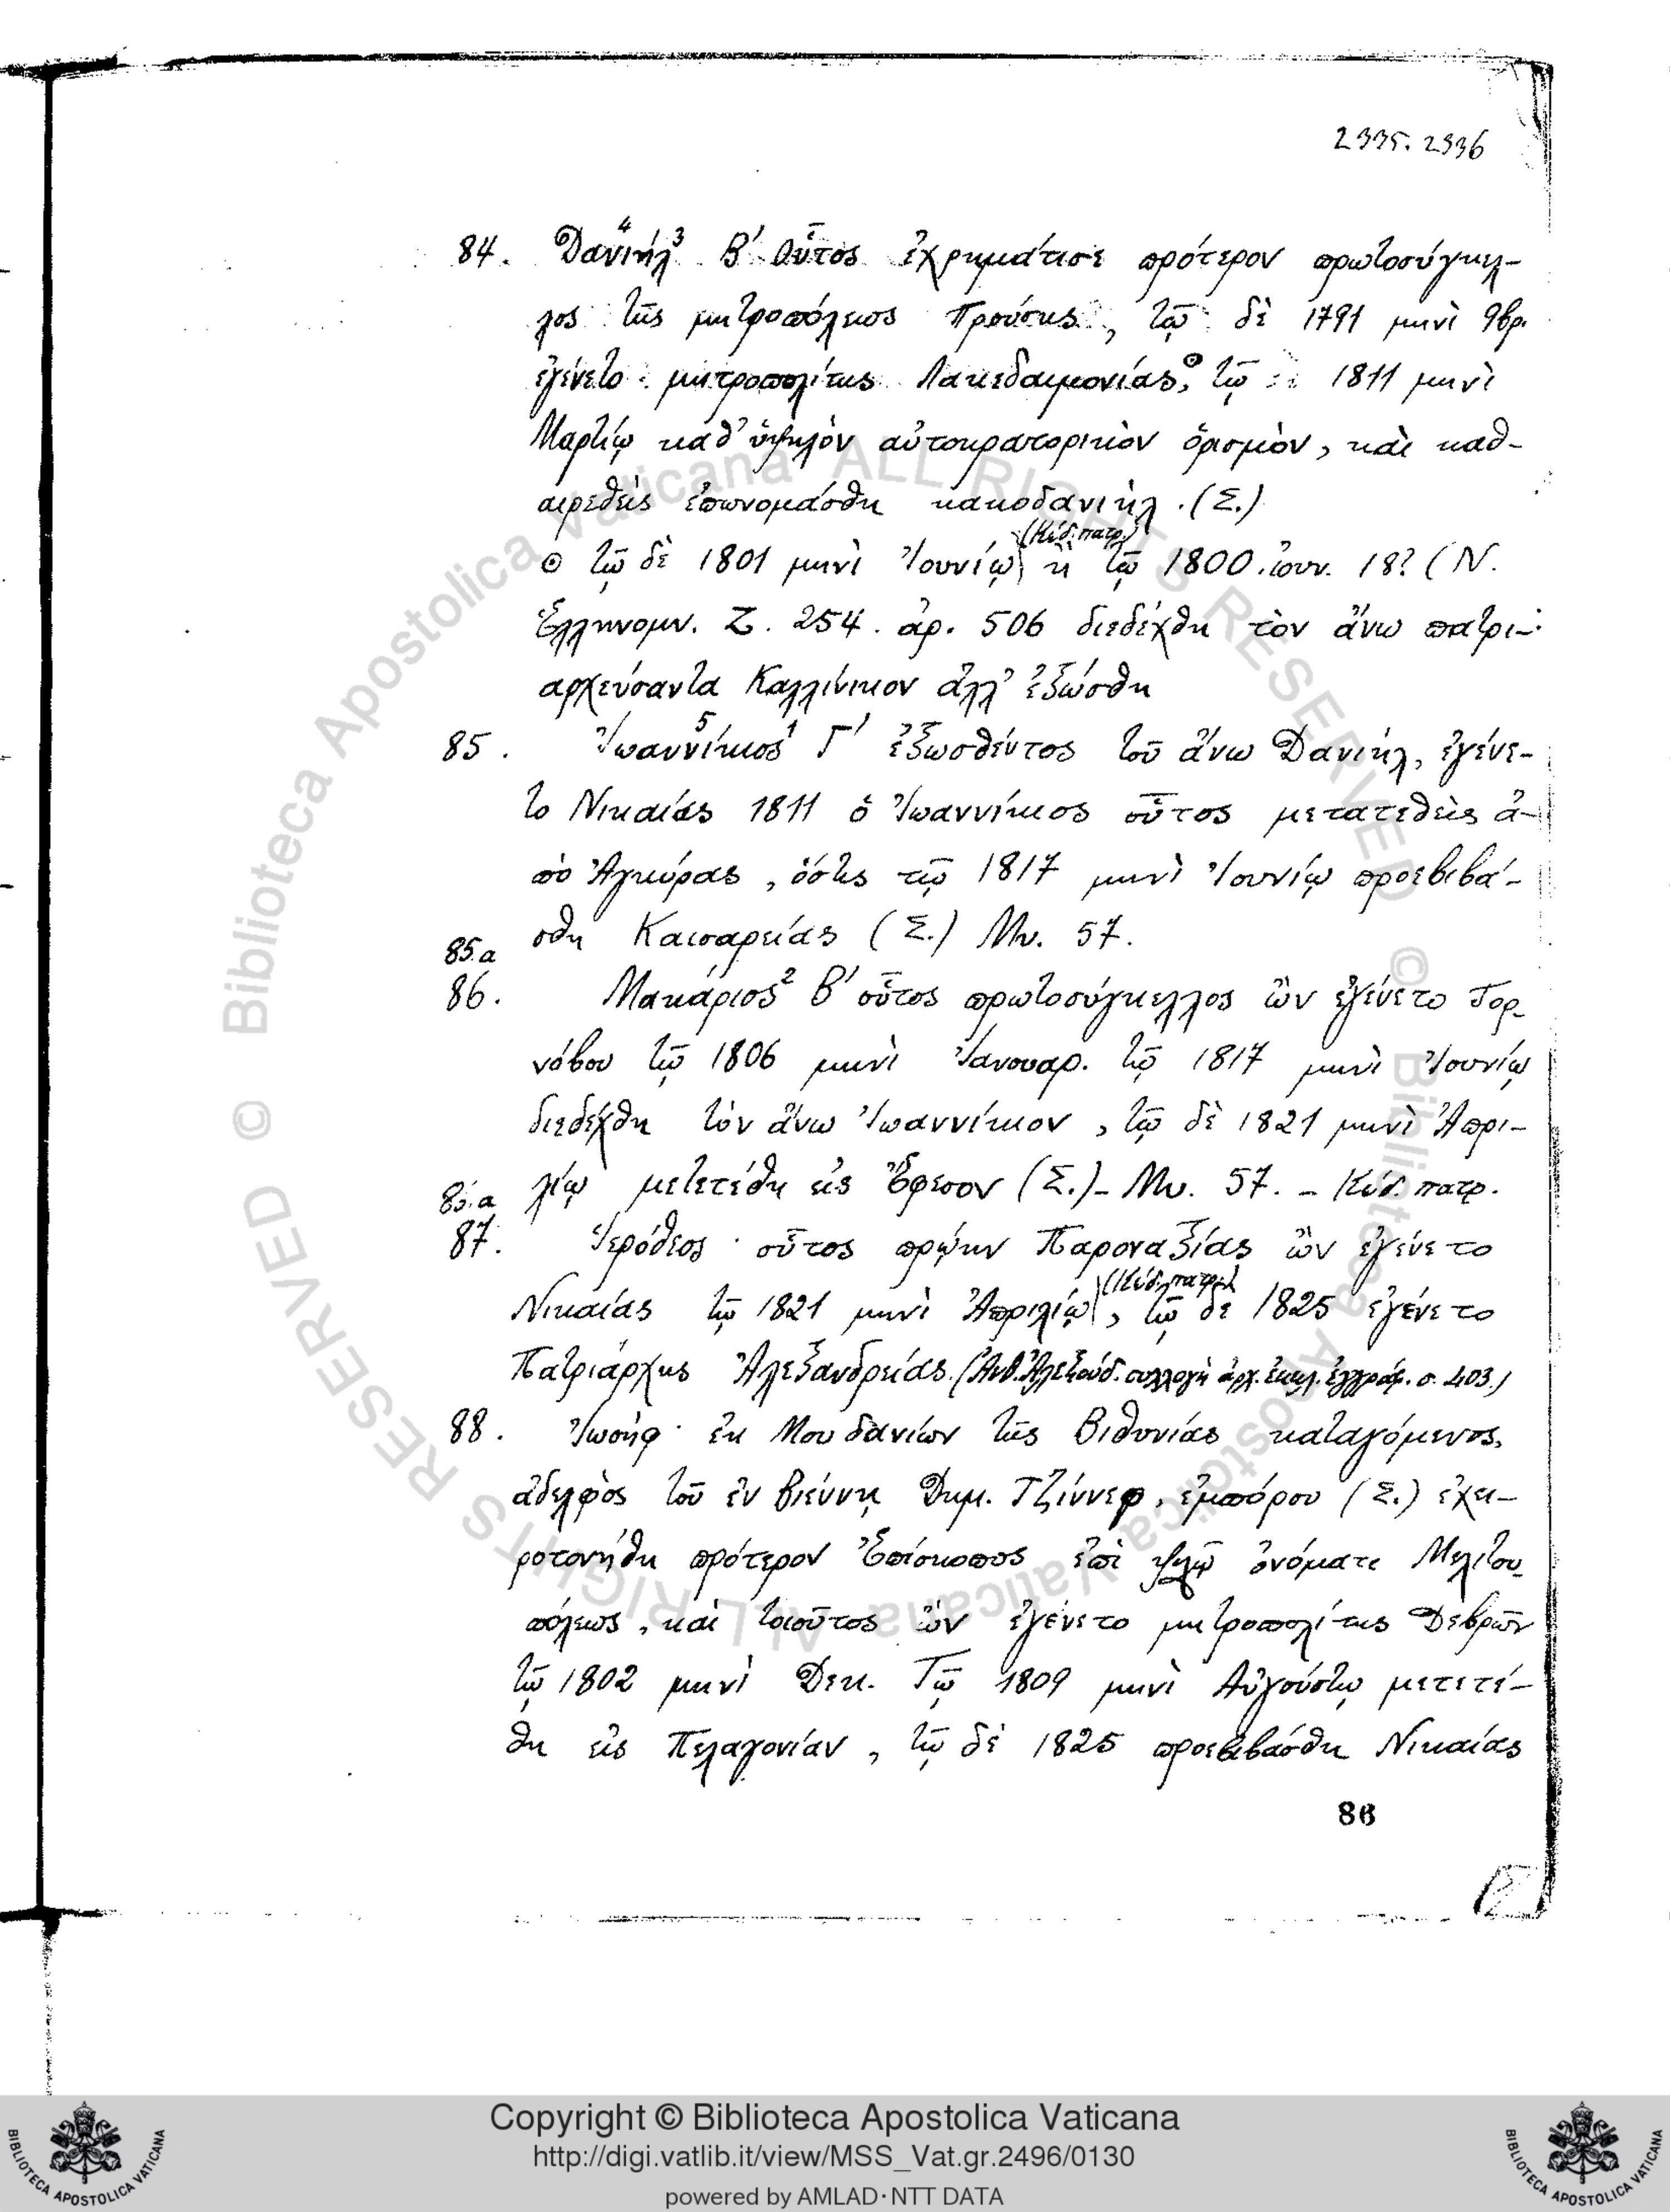 2335. 2336
84. Δανιήλ Β' οὗτος ἐχρημάτισε πρότερον πρωτοσύγκελ-
λος τῆς μητροπόλεως Προύσης, τῷ δὲ 1791 μηνὶ 9βρ.
ἐγένετο μητροπολίτης Λακεδαιμονίας, ⊙ τῷ 1811 μηνὶ
Μαρτίῳ καθ' ὑψηλὸν αὐτοκρατορικὸν ὁρισμὸν, καὶ καθ-
αιρεθεὶς ἐπωνομάσθη κακοδανιὴλ. (Σ.)
(Κώδ. πατρ.)
⊙ τῷ δὲ 1801 μηνὶ Ἰουνίῳ ἢ τῷ 1800. ἰουν. 18? (Ν.
Ἑλληνομν. Ζ. 254. ἀρ. 506 διεδέχθη τὸν ἄνω πατρι-
αρχεύσαντα Καλλίνικον ἀλλ' ἐξώσθη
85. Ἰωαννίκιος Γ' ἐξωσθέντος τοῦ ἄνω Δανιήλ, ἐγένε-
το Νικαίας 1811 ὁ Ἰωαννίκιος οὗτος μετατεθεὶς ἀ-
πὸ Ἀγκύρας, ὅστις τῷ 1817 μηνὶ Ἰουνίῳ προεβιβά-
σθη Καισαρείας (Σ.) Μν. 57.
85.a
86. Μακάριος² Β' οὗτος πρωτοσύγκελλος ὢν ἐγένετο Τορ-
νόβου τῷ 1806 μηνὶ Ἰανουαρ. τῷ 1817 μηνὶ Ἰουνίῳ
διεδέχθη τὸν ἄνω Ἰωαννίκιον, τῷ δὲ 1821 μηνὶ Ἀπρι-
λίῳ μετετέθη εἰς Ἔφεσον (Σ.) – Μν. 57. – Κώδ. πατρ.
87. Ἱερόθεος· οὗτος πρῴην Παροναξίας ὢν ἐγένετο
(Κώδ. πατρ.)
Νικαίας τῷ 1821 μηνὶ Ἀπριλίῳ, τῷ δὲ 1825 ἐγένετο
Πατριάρχης Ἀλεξανδρείας. (Ἀνθ. Ἀλεξούδ. συλλογὴ ἀρχ. ἐκκλ. ἐγγράφ. σ. 403.)
88. Ἰωσήφ· ἐκ Μουδανίων τῆς Βιθυνίας καταγόμενος,
ἀδελφὸς τοῦ ἐν Βιέννῃ Δημ. Τζίννεφ, ἐμπόρου (Σ.) ἐχει-
ροτονήθη πρότερον Ἐπίσκοπος ἐπὶ ψιλῷ ὀνόματι Μελιτου-
πόλεως, καὶ τοιοῦτος ὢν ἐγένετο μητροπολίτης Δεβρῶν
τῷ 1802 μηνὶ Δεκ. Τῷ 1809 μηνὶ Αὐγούστῳ μετετέ-
θη εἰς Πελαγονίαν, τῷ δὲ 1825 προεβιβάσθη Νικαίας
86
© Biblioteca Apostolica Vaticana ALL RIGHTS RESERVED
Copyright © Biblioteca Apostolica Vaticana
http://digi.vatlib.it/view/MSS_Vat.gr.2496/0130
powered by AMLAD·NTT DATA
BIBLIOTECA APOSTOLICA VATICANA
BIBLIOTECA APOSTOLICA VATICANA